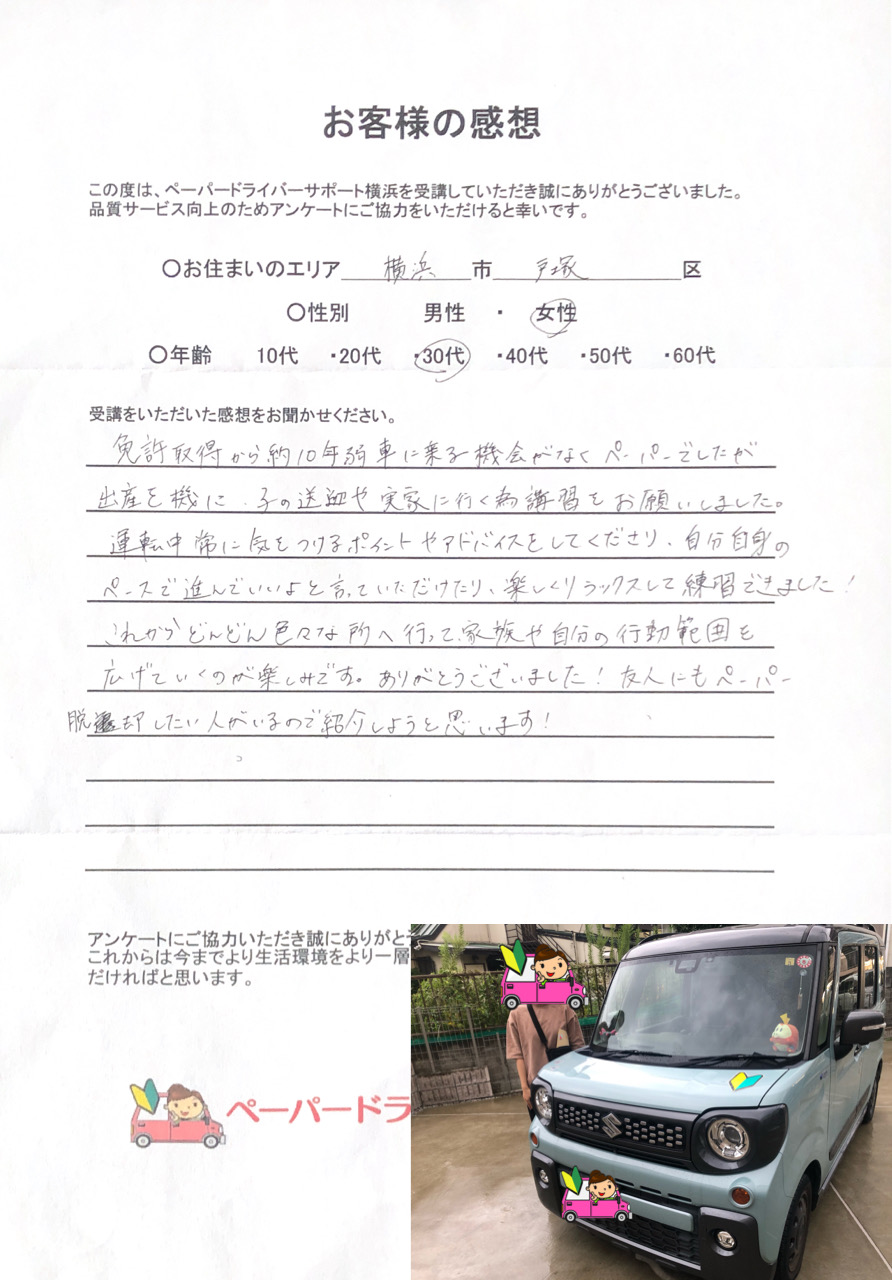 お客様の感想
この度は、ペーパードライバーサポート横浜を受講していただき誠にありがとうございました。
品質サービス向上のためアンケートにご協力をいただけると幸いです。
〇お住まいのエリア 横浜 市 戸塚 区
〇性別 男性 ・ 女性
〇年齢 10代 ・20代 ・30代 ・40代 ・50代 ・60代
受講をいただいた感想をお聞かせください。
免許取得から約10年弱車に乗る機会がなくペーパーでしたが
出産を機に、子の送迎や実家に行く為講習をお願いしました。
運転中常に気をつけるポイントやアドバイスをしてくださり、自分自身の
ペースで進んでいいよと言っていただけたり、楽しくリラックスして練習できました!
これからどんどん色々な所へ行って、家族や自分の行動範囲を
広げていくのが楽しみです。ありがとうございました!友人にもペーパー
脱却したい人がいるので紹介しようと思います!
アンケートにご協力いただき誠にありがと
これからは今までより生活環境をより一層
だければと思います。
ペーパードラ